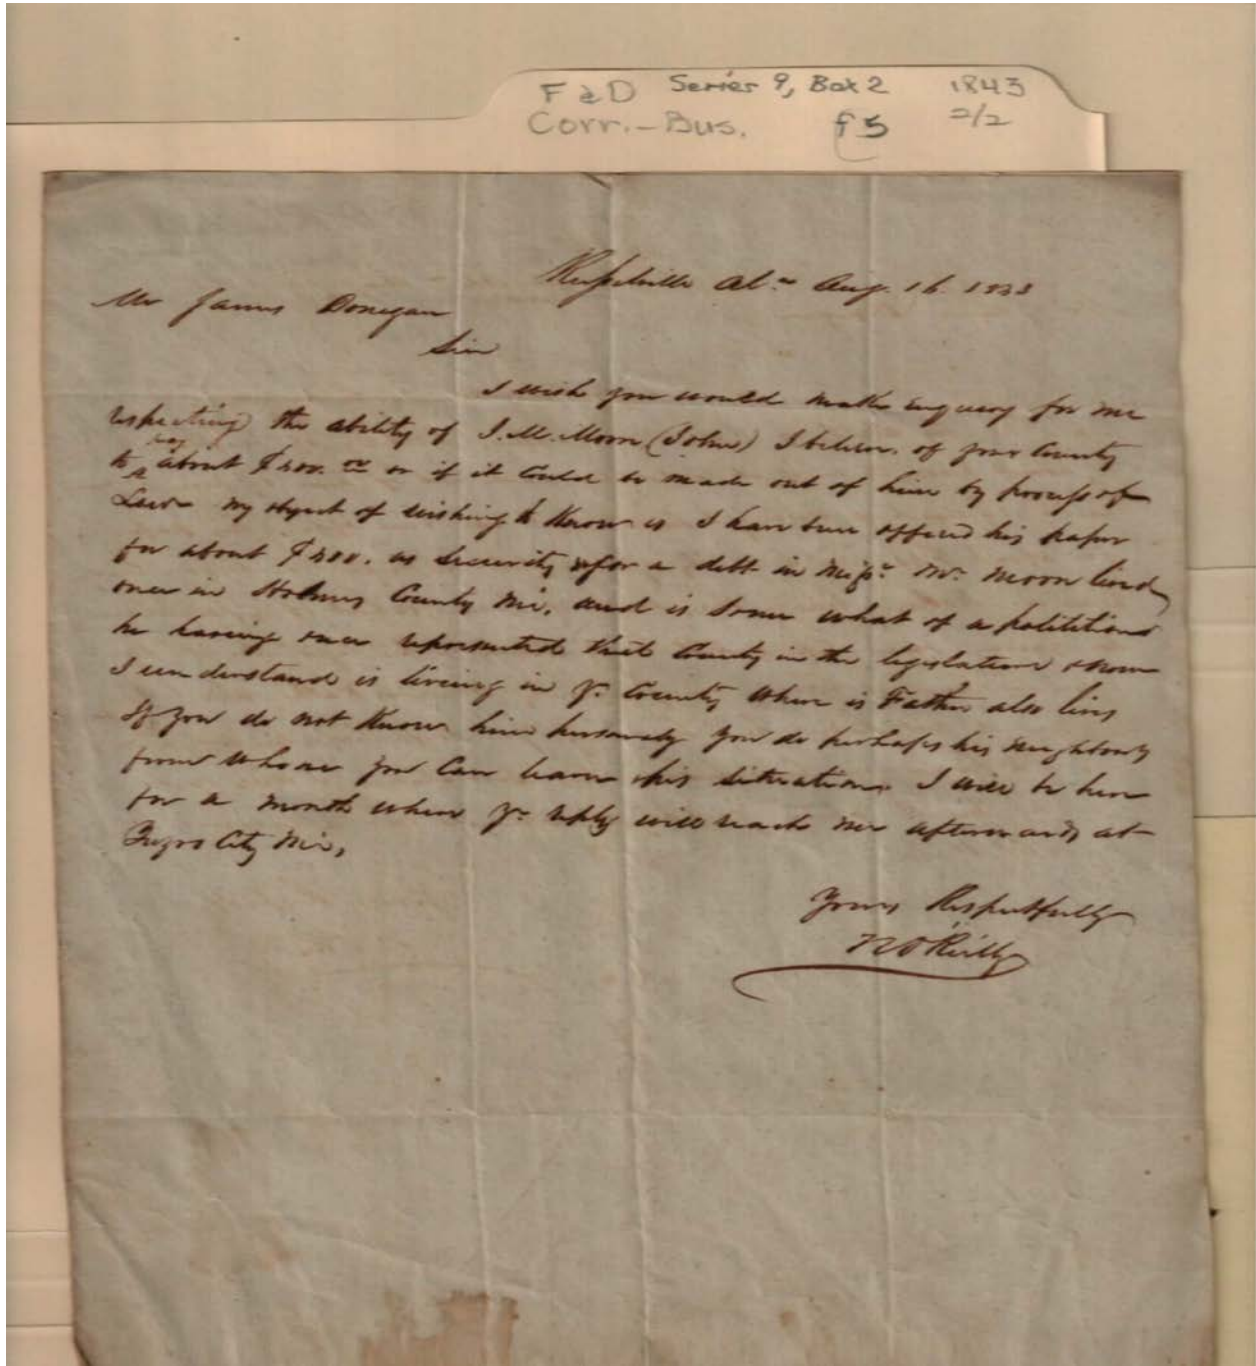 F & D Series 9, Box 2 1843
Corr.-Bus. f5 2/2
Russelville Al.a Aug. 16. 1843
Mr James Donegan
Sir
I wish you would make inquiry for me
respecting the ability of J. M. Moon (John) I believe. of your County
to pay about $ or if it could be made out of him by process of
Law my object of wishing to know is I have been offered his paper
for about $ as security for a debt in Missi. Mr. Moon lived
once in Holmes County Mi. and is some what of a politition
he having once represented that County in the legislature & now
I understand is living in yr. County where is Father also lives
If you do not know him personaly you do perhaps his neighbours
from whome you can learn his situation. I will be here
for a month where yr. reply will reach me afterwards at
City Mi.
Yours Respectfully
O'Reilly